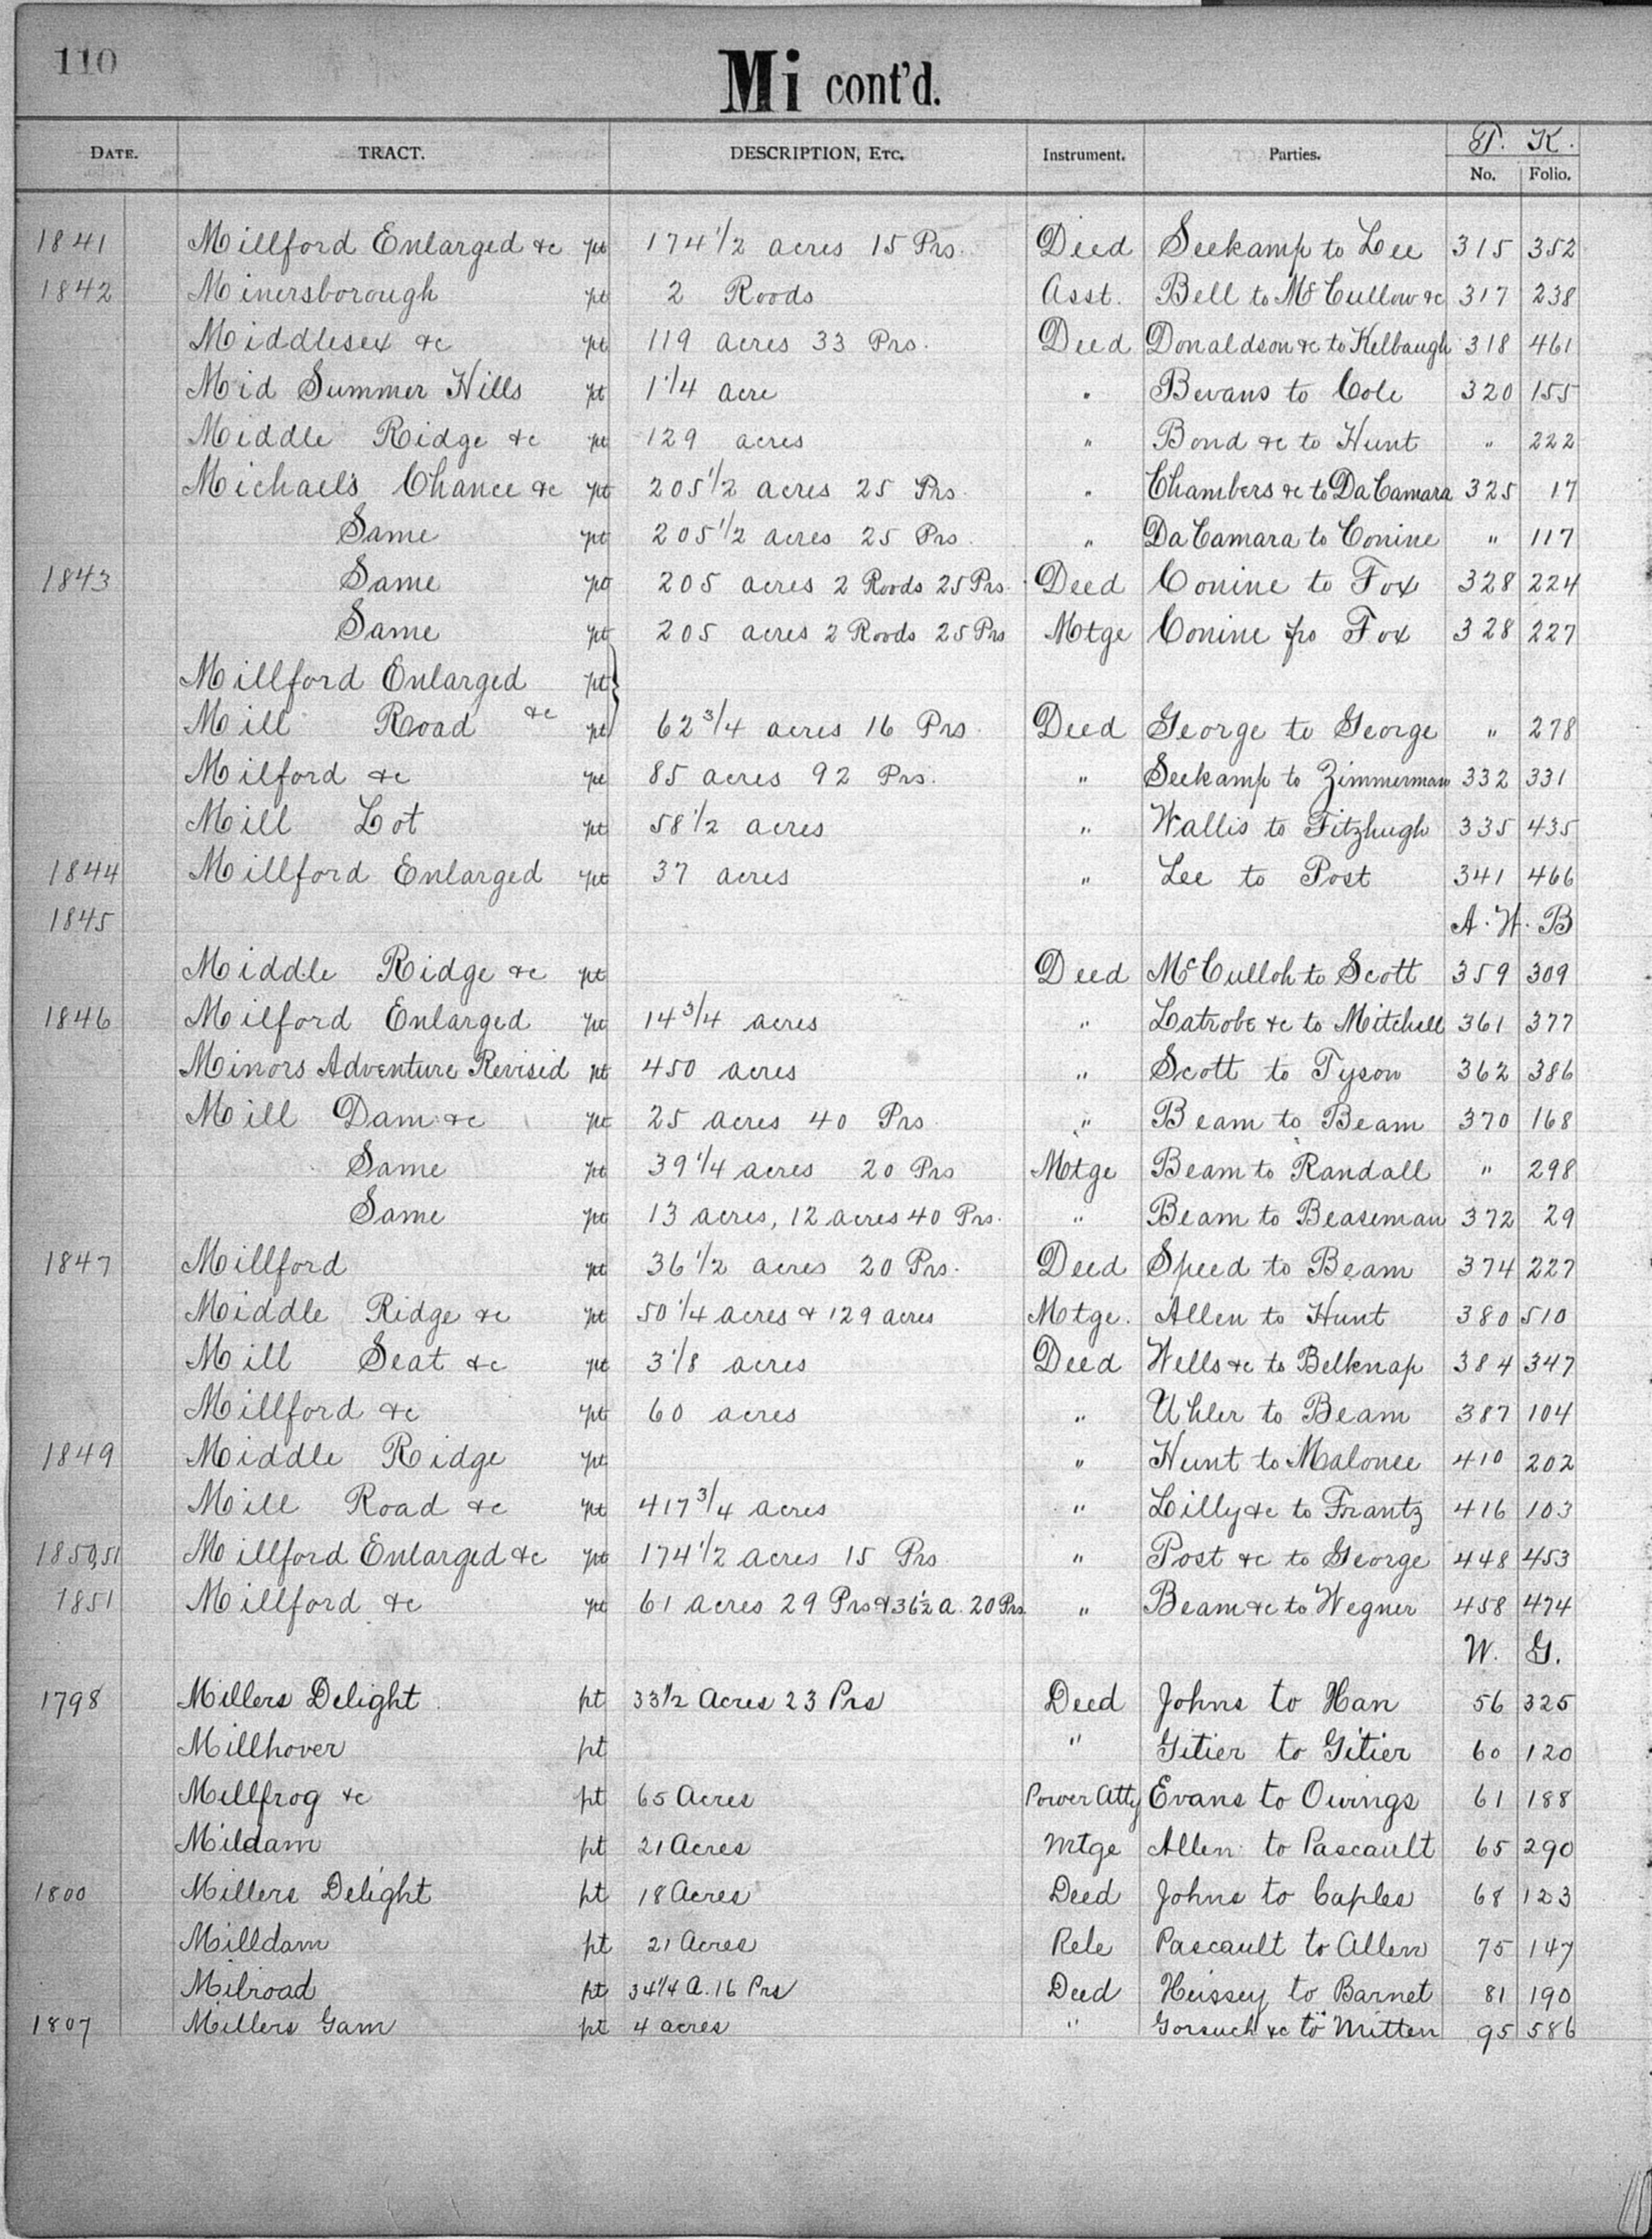 110
Mi cont'd.
DATE. TRACT. DESCRIPTION, ETC. Instrument. Parties. T. K.
No. Folio.
1841 Millford Enlarged &c pt 174 1/2 acres 15 Prs. Deed Seekamp to Lee 315 352
1842 Minersborough pt 2 Roods Asst. Bell to McCullow &c 317 238
Middlesex &c pt 119 acres 33 Prs. Deed Donaldson &c to Kelbaugh 318 461
Mid Summer Hills pt 1 1/4 acre " Bevans to Cole 320 155
Middle Ridge &c pt 129 acres " Bond &c to Hunt " 222
Michael's Chance &c pt 205 1/2 acres 25 Prs. " Chambers &c to DaCamara 325 17
Same pt 205 1/2 acres 25 Prs. " DaCamara to Conine " 117
1843 Same pt 205 acres 2 Roods 25 Prs. Deed Conine to Fox 328 224
Same pt 205 acres 2 Roods 25 Prs Mtge Conine fro Fox 328 227
Millford Enlarged pt
Mill Road &c pt 62 3/4 acres 16 Prs. Deed George to George " 278
Milford &c pt 85 acres 92 Prs. " Seekamp to Zimmerman 332 331
Mill Lot pt 58 1/2 acres " Wallis to Fitzhugh 335 435
1844 Millford Enlarged pt 37 acres " Lee to Post 341 466
1845 A. W. B
Middle Ridge &c pt Deed McCulloh to Scott 359 309
1846 Milford Enlarged pt 14 3/4 acres " Latrobe &c to Mitchell 361 377
Minors Adventure Revised pt 450 acres " Scott to Tyson 362 386
Mill Dam &c pt 25 acres 40 Prs. " Beam to Beam 370 168
Same pt 39 1/4 acres 20 Prs Mtge Beam to Randall " 298
Same pt 13 acres, 12 acres 40 Prs. " Beam to Beaseman 372 29
1847 Millford pt 36 1/2 acres 20 Prs. Deed Speed to Beam 374 227
Middle Ridge &c pt 50 1/4 acres & 129 acres Mtge. Allen to Hunt 380 510
Mill Seat &c pt 3 1/8 acres Deed Wells &c to Belknap 384 347
Millford &c pt 60 acres " Uhler to Beam 387 104
1849 Middle Ridge pt " Hunt to Malonee 410 202
Mill Road &c pt 417 3/4 acres " Lilly &c to Frantz 416 103
1850,51 Millford Enlarged &c pt 174 1/2 acres 15 Prs " Post &c to George 448 453
1851 Millford &c pt 61 acres 29 Prs & 36 1/2 a. 20 Prs. " Beam &c to Wegner 458 474
W. G.
1798 Millers Delight pt 33 1/2 Acres 23 Prs Deed Johns to Han 56 325
Millhover pt " Gitier to Gitier 60 120
Millfrog &c pt 65 Acres Power Atty Evans to Owings 61 188
Mildam pt 21 Acres Mtge Allen to Pascault 65 290
1800 Millers Delight pt 18 Acres Deed Johns to Caples 68 123
Milldam pt 21 Acres Rele Pascault to Allen 75 147
Milroad pt 34 1/4 A. 16 Prs Deed Heissey to Barnet 81 190
1807 Millers Gam pt 4 acres " Gorsuch &c to Mitten 95 586